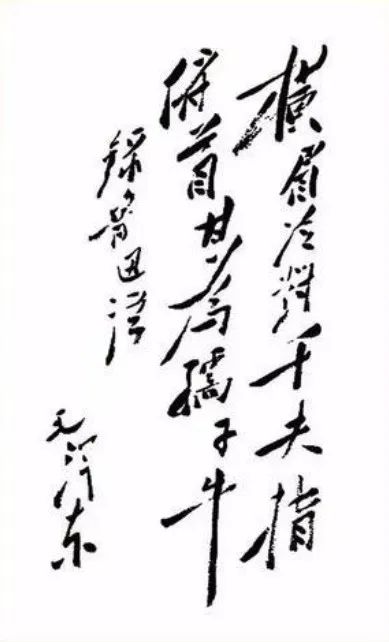 横眉冷對千夫指
俯首甘为孺子牛
録鲁迅语
毛泽东